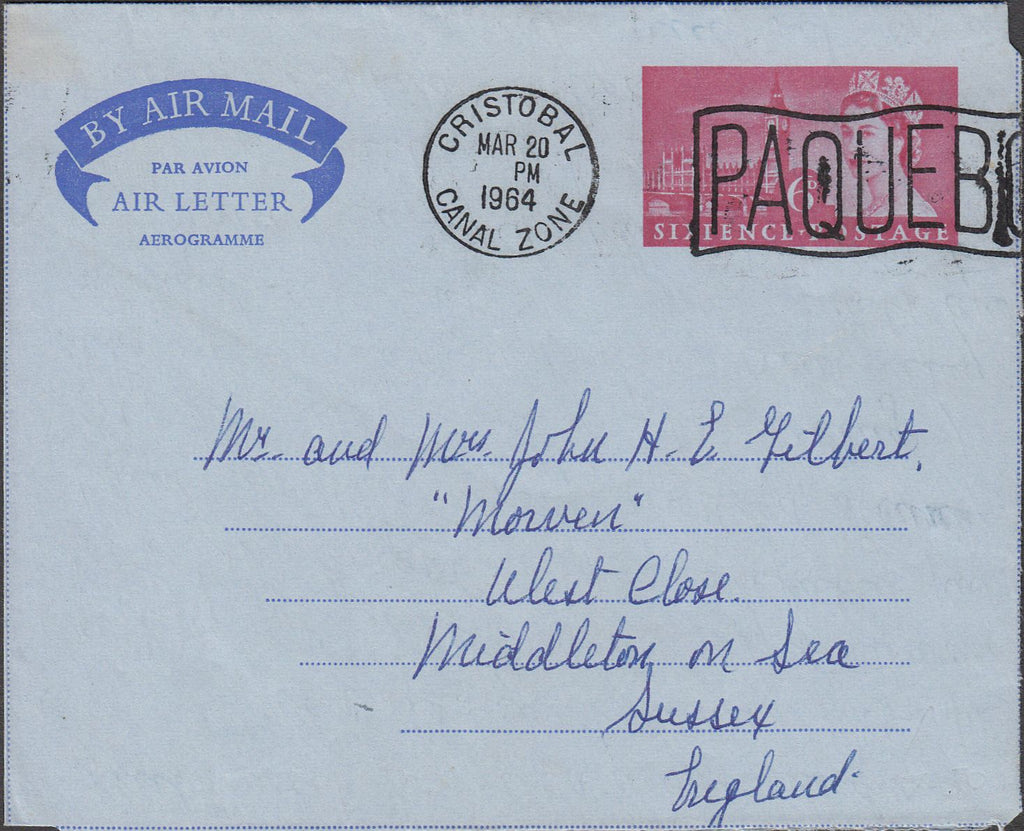 BY AIR MAIL
PAR AVION
AIR LETTER
AEROGRAMME
CRISTOBAL
MAR 20
PM
1964
CANAL ZONE
6D
SIXPENCE·POSTAGE
PAQUEBO
Mr. and Mrs. John H. E Gilbert,
"Morven"
West Close.
Middleton on Sea
Sussex
England.